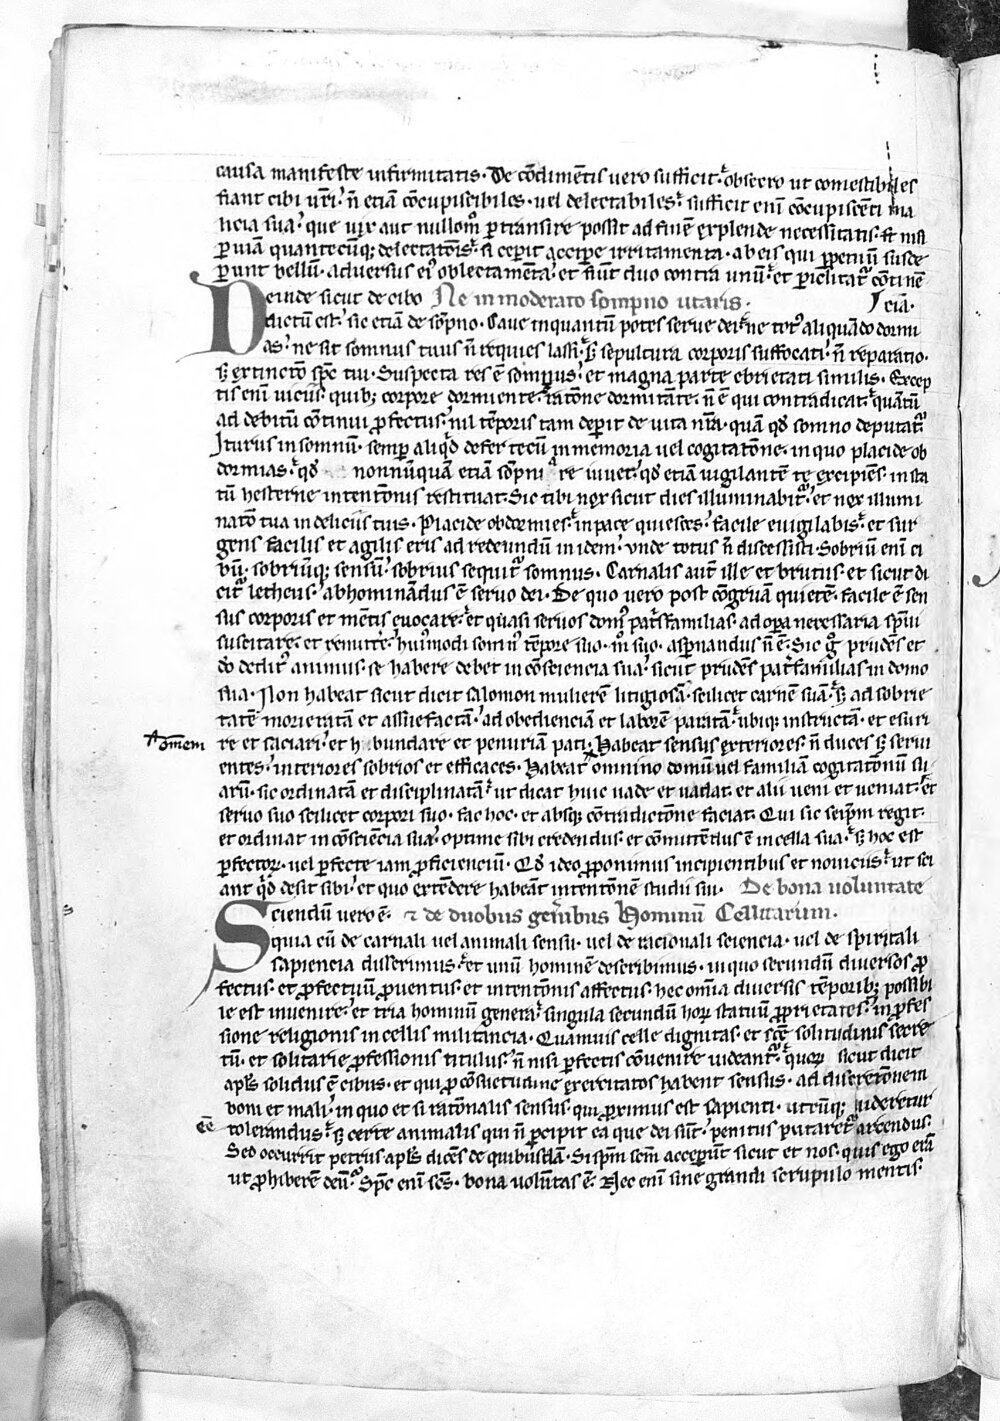 causa manifeste infirmitatis. De cōdimētis uero sufficit. obsecro ut comestibiles
fiant cibi ur̄i. n̄ etiā cōcupiscibiles. uel delectabiles. sufficit eni cōcupiscēti ma
licia sua. que uix aut nullom̄ ꝑtransire possit ad finē explende necessitatis. nisi
ꝑ uiā quantecūq; delectatōis. si ceperit accipe irritamenta. ab eis qui ꝑpetuū susce
ꝑunt bellū. aduersus ei oblectamēta. et fiūt duo contra unū. et ꝑiclitat̄ cōtinē
Deinde sicut de cibo Ne in moderato sompno utaris. cia.
dictū est. sic etiā de sōpno. Caue inquantū potes serue dei. ne tot aliquādo dormi
as. ne sit somnus tuus n̄ requies lassi. sꝫ sepultura corporis suffocati. n̄ reparatio.
sꝫ extinctō spc tui. Suspecta res ē sompnus. et magna parte ebrietati similis. Excep
tis eni uiciis. quibꝫ corpore dormiente. ratōne dormitāte. n̄ ē qui contradicat. quātū
ad debitū cōtinui ꝓfectus. nil tēporis tam deꝑit de uita nr̄a. quā qd somno deputat̄
Iturus in somnū. semꝑ aliqd defer tecū in memoria uel cogitatōne. in quo placide ob
dormias. qd nonnūquā etiā sōpniare iuuet. qd etiā uigilantē te excipiēs. insta
tū hesterne intentōnis restituat. Sic tibi nox sicut dies illuminabit̄. et nox illumi
natō tua in deliciis tuis. Placide obdormies. in pace quiesces. facile euigilabis. et sur
gens facilis et agilis eris ad redeundū in idem. unde totus n̄ discessisti. Sobriū eni ci
bū. sobriūq; sensū. sobrius sequit̄ somnus. Carnalis aut̄ ille et brutus. et sicut di
cit̄ letheus. abhominādus ē seruo dei. De quo uero post cōgruā quietē. facile ē sen
sus corporis et mētis euocare. et quasi seruos dom patr̄familias. ad oꝑa necessaria spūi
suscitare. et remitte. hui modi somn tēpore suo. m suo. asꝑnandus n̄ ē. Sic g prudēs et
dō dedit animus. se habere debet in cōsciencia sua. sicut prudēs pat̄familias in domo
sua. Non habeat sicut dicit salomon mulierē litigiosā. scilicet carnē suā. sꝫ ad sobrie
tatē morigeratā et assuefactā. ad obedienciā et laborē paratā. ubiq; instructā. et esuri
re et saciari. et habundare et penuriam pati. Habeat sensus exteriores. n̄ duces sꝫ serui
entes. interiores sobrios et efficaces. Habeat omnino domū uel familiā cogitatōnū su
arū. sic ordinatā et disciplinatā. ut dicat huic uade et uadat. et alii ueni et ueniat. et
seruo suo scilicet corpori suo. fac hoc. et absq; cōtradictōne faciat. Qui sic seip̄m regit.
et ordinat in cōsciēcia sua. optime sibi credendus. et cōmittēdus ē in cella sua. sꝫ hoc est
ꝑfectoꝝ. uel ꝑfecte iam ꝓficienciū. Qd ideo ꝓponimus incipientibus et nouiciis. ut sci
ant qd desit sibi. et quo extēdere habeāt intentōnē studii sui. De bona uoluntate
Sciendū uero ē. ⁊ de duobus gen̄ibus hominū Cellitarum.
quia cū de carnali uel animali sensu. uel de racionali sciencia. uel de spiritali
sapiencia disserimus. et unū hominē describimus. in quo secundū diuersos ꝓ
fectus. et ꝓfectuū ꝓuentus. et intentōnis affectus. hec omīa diuersis tēporibꝫ possibi
le est inuenire. et tria hominū genera. singula secundū hoꝝ statuū ꝓprietates. in ꝓfes
sione religionis in cellis militancia. Quamuis celle dignitas. et scē solitudinis secre
tū. et solitarie ꝓfessionis titulus. n̄ nisi ꝑfectis cōuenire uideant̄. quoꝝ sicut dicit
apl̄s solidus ē cibus. et qui ꝓ cōsuetudine exercitatos habent sensus. ad discretōnem
boni et mali. in quo et si ratōnalis sensus. qui ꝓximus est sapienti. utcūq; uideretur
tolerandus. sꝫ certe animalis qui n̄ ꝑcipit ea que dei sūt. penitus putaret̄ arcendus.
Sed occurrit petrus apl̄s dicēs de quibusdā. Si spm̄ scm̄ acceꝑūt sicut et nos. quis ego erā
ut ꝓhiberē deū. Spc eni scs. bona uolūtas ē. Nec eni sine grandi scrupulo mentis